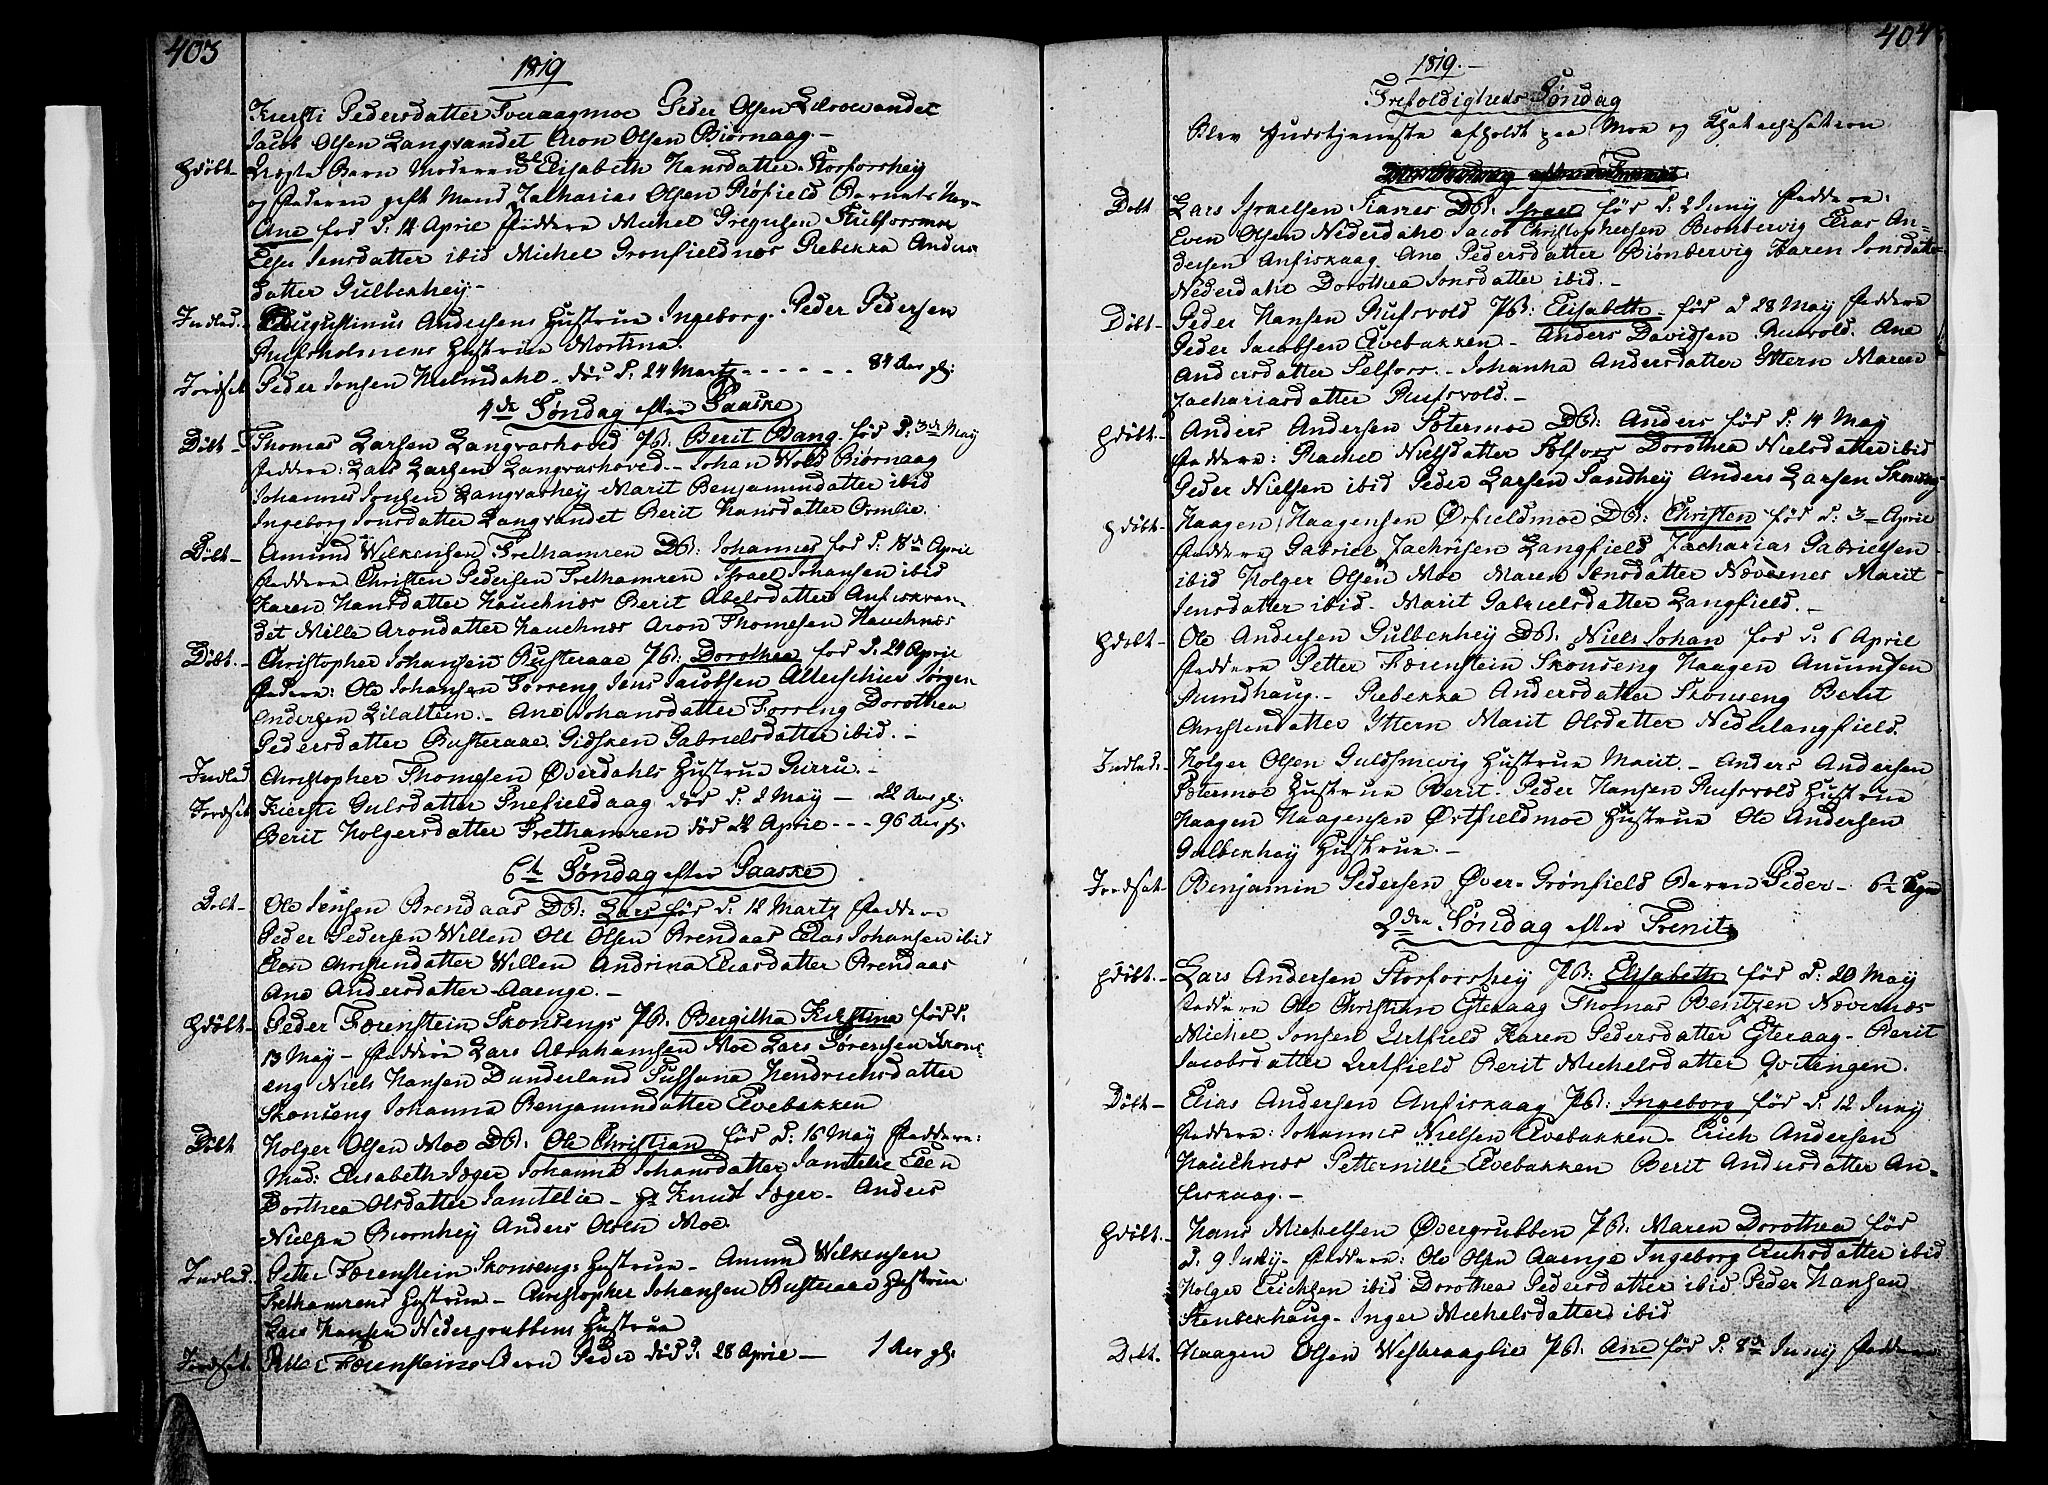 403
1819
Kiersti Pedersdatter Tveraagmoe Peder Olsen
Jacob Olsen Langvandet Aron Olsen Biørnaag –
Hdöbt – Barn Moderen Elisabeth Hansdatter Storforshey
og Faderen gift Mand Zacharias Olsen Röfield Barnets
Ane föd d: 12 April Faddere Michel Stubforsmoe
Jensdatter ibid Michel Gronfieldnæs Rebekka Anders
datter Gulbekhey –
Indled. Augustinus Andersens Hustrue Ingeborg. Peder Pedersen
Rufsholmens Hustrue Martina.
Jordfæst Peder Jonsen död d: 24 Martz - - - - - - 84 Aar gl:
4de Søndag efter Paaske
Döbt – Thomas Larsen Langvashoved PB: Berit Bang föd d: 3de May
Faddere: Lars Larsen Langvashoved – Johan Wold Biørnaag
Johannes Jonsen Langvashey Marit Benjamindatter ibid
Ingeborg Jonsdatter Langvandet Berit Hansdatter Ormlie.
Döbt – Amund Wilkensen Frethamren DB: Johannes föd d: 18de April
Faddere Christen Pedersen Frethamren Israel Johansen ibid
Karen Hansdatter Hauchnæs Berit Abelsdatter Anfiskvan-
det Mille Arondatter Hauchnæs Aron Thomesen Hauchnæs
Döbt. – Christopher Johansen Busteraae PB: Dorothea föd d. 24 April
Faddere: Ole Johansen Forreng Jens Jacobsen Alterschier Jørgen
Andersen Lilaltien. – Ane Johansdatter Forreng Dorothea
Pedersdatter Busteraae Gidsken Gabrielsdatter ibid. –
Indled Christopher Thomesen Øverdahls Hustrue Gurru. –
Jordfæst Kiersti Gulsdatter Snefieldaag död d: 2 May – 22 Aar gl:
Berit Holgersdatter Frethamren död 22 April - - - 96 Aar gl:
6te Søndag efter Paaske
Döbt – Ole Jensen Brendaas DB: Lars föd d: 12 Martz Faddere
Peder Pedersen Willen Ole Olsen Brendaas Elias Johansen ibid
Elen Christendatter Willen Andrina Eliasdatter Brendaas
Ane Andersdatter Aaenge. –
Hdöbt – Peder Færenstein Skonsengs PB. Bergitha Kirstina föd d.
13 May – Faddere Lars Abrahamsen Moe Lars Sørensen Skons-
eng Niels Hansen Dunderland Sussana Hendrichsdatter
Skonseng Johanna Benjamindatter Elvebakken
Döbt Holger Olsen Moe DB. Ole Christian föd d: 16 May Faddere:
Mad: Elisabeth Jæger Johanna Johansdatter Jamtelie Elen
Dorthea Olsdatter Jamtelie – Knudt Jæger – Anders
Nielsen Biornhey Anders Olsen Moe.
Indled. Petter Færenstein Skonsengs Hustrue – Amund Wilkensen
Frethamrens Hustrue – Christopher Johansen Busteraae Hustrue
Lars Hansen Nedergrubbens Hustrue
Jordfæst Petter Færensteins Barn Peder död d. 28 April – 1 Aar gl:
404
1819.
Trefoldigheds Søndag
Blev Gudstjeneste afholdt paa Moe og Chatechisation
Döbt Lars Israelsen Ranes DB: Israel föd d: 2 Juny Faddere:
Even Olsen Nederdahl Jacob Christophersen Bionbervig Elias An-
dersen Anfiskaag Ane Pedersdatter Biönbervig Karen Jonsdatter
Nederdahl Dorothea Jonsdatter ibid. –
Döbt – Peder Hansen Rufsvold PB: Elisabeth föd d 28 May Faddere
Peder Jacobsen Elvebakken – Anders Davidsen Rusvold. Ane
Andersdatter Selfors. – Johanna Andersdatter Yttern Maren
Zachariasdatter Rufsvold. –
Hdöbt. – Anders Andersen Sætermoe DB: Anders föd d: 14 May
Faddere: Rachel Nielsdatter Selfors Dorothea Nielsdatter ibid
Peder Nielsen ibid Peder Larsen Sandhey Anders Larsen
Hdöbt – Haagen Haagensen Ørtfieldmoe DB: Christen föd d: 3 – April
Faddere Gabriel Zachrisen Langfield Zacharias Gabrielsen
ibid Holger Olsen Moe Maren Jensdatter Næversnes Marit
Jensdatter ibid – Marit Gabrielsdatter Langfield. –
Hdöbt – Ole Andersen Gulbekhey DB: Niels Johan föd d: 6 April
Faddere Petter Færenstein Skonseng Haagen Amundsen
Rundhaug – Rebekka Andersdatter Skonseng Berit
Christendatter Yttern Marit Olsdatter Nederlangfield.
Indled. – Holger Olsen Guldsmevig Hustrue Marit. – Anders Andersen
Sætermoe Hustrue Berit – Peder Hansen Rufsvold Hustrue
Haagen Haagensen Ørtfieldmoe Hustrue Ole Andersen
Gulbekhey Hustrue. –
Jordfæst – Benjamin Pedersen Øver-Grönfield Barn Peder – 6
2den Søndag efter Trenit
Hdöbt. – Lars Andersen Storforshey PB: Elisabeth föd d: 20 May
Faddere Ole Christian Yteraag Thomas Bentzen Nævernæs
Michel Jonsen Urtfield Karen Pedersdatter Yteraag – Berit
Jacobsdatter Urtfield Berit Michelsdatter Qvitingen.
Döbt – Elias Andersen Anfiskaag PB: Ingeborg föd d: 12 Juny
Faddere: Johannes Nielsen Elvebakken – Erich Andersen
Hauchnæs Petternille Elvebakken Berit Andersdatter An-
fiskaag. –
Hdöbt. – Hans Michelsen Øvergrubben PB. Maren Dorothea föd
d. 9 Juny – Faddere: Ole Olsen Aaenge Ingeborg Erichsdatter ibid
Holger Erichsen ibid Dorothea Pedersdatter ibid Peder Hansen
Stenbekhaug – Inger Michelsdatter ibid
Döbt. Haagen Olsen Westeraaglie PB. Ane föd d: 8de Juny Faddere